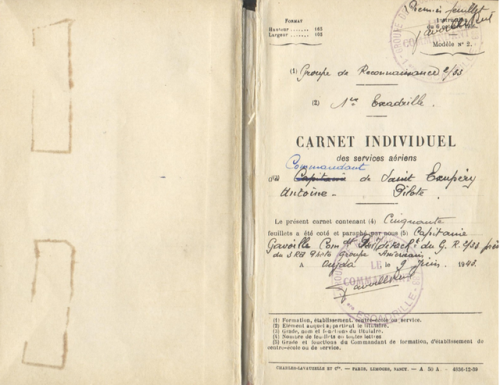 Premier feuillet
FORMAT
Hauteur 163
Largeur 102
Modèle n° 2.
(1) Groupe de Reconnaissance 2/33
(2) 1ère Escadrille.
CARNET INDIVIDUEL
des services aériens
Commandant
Capitaine de Saint Exupéry
Antoine - Pilote
Le présent carnet contenant (4) Cinquante
feuillets a été coté et paraphé par nous (5) Capitaine
Gavoille Comdt du G.R. 2/33
du 3rd Photo Groupe Américain
A Oujda le 9 Juin 1943.
Gavoille
(1) Formation, établissement, centre-école ou service.
(2) Élément auquel appartient le titulaire.
(3) Grade, nom et prénoms du titulaire.
(4) Nombre de feuillets en toutes lettres
(5) Grade et fonctions du Commandant de formation, d'établissement de
centre-école ou de service.
CHARLES-LAVAUZELLE ET Cie. — PARIS, LIMOGES, NANCY. — A 30 A